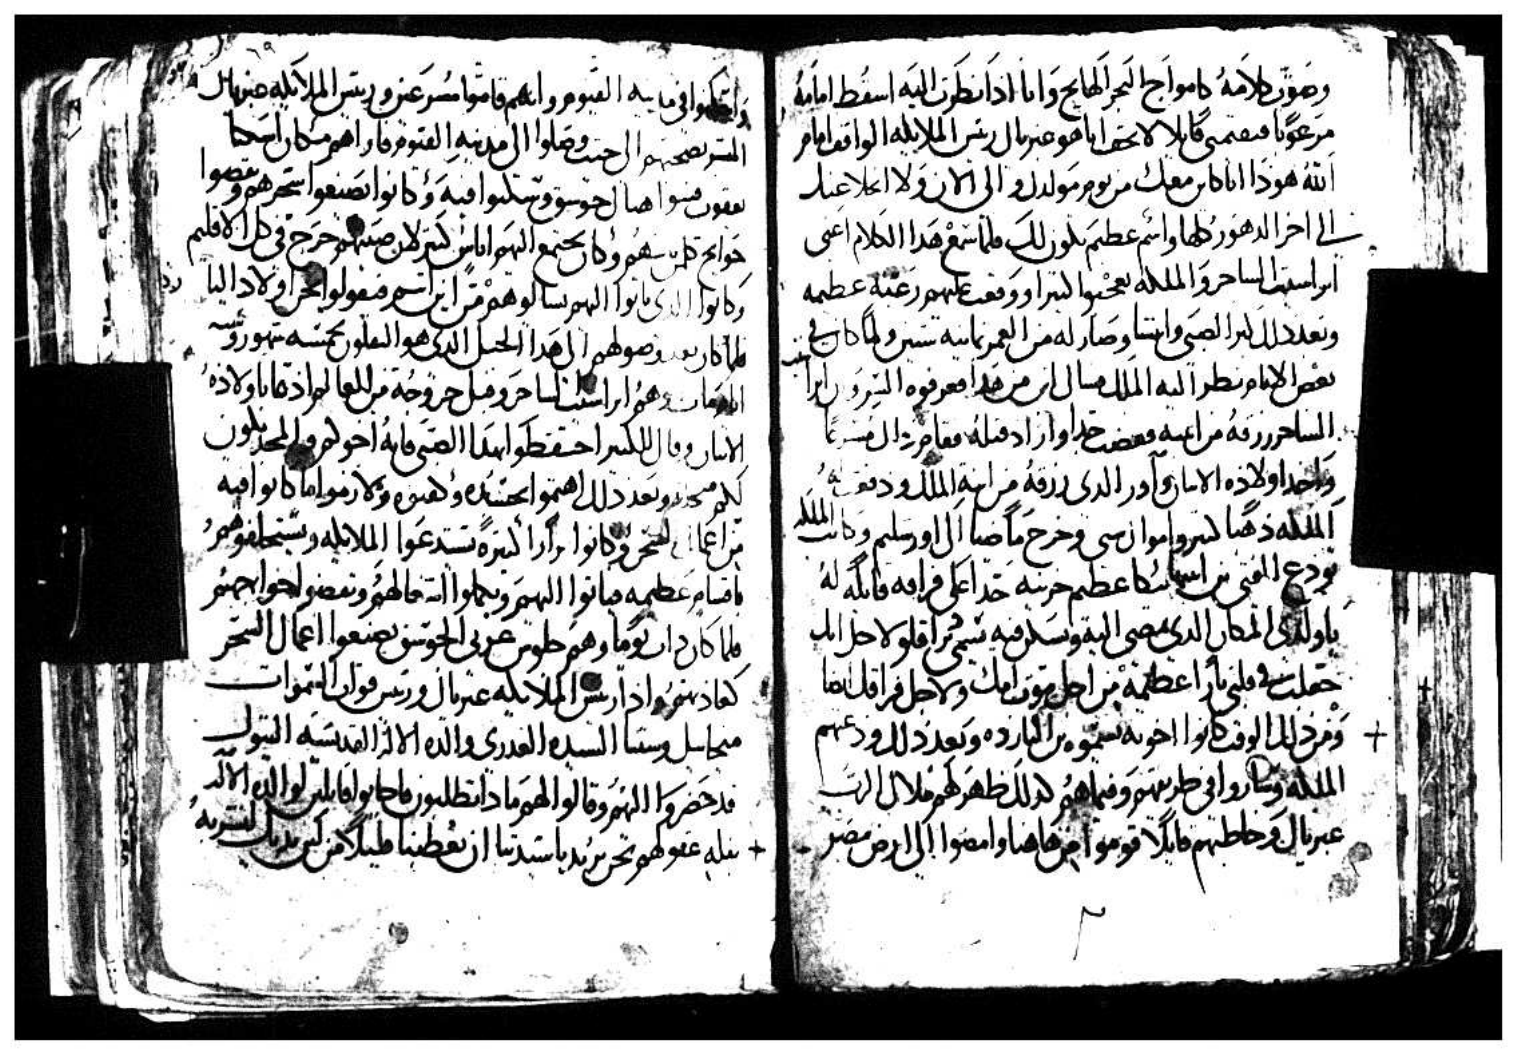 وصوت كلامه كامواج البحر الهايج وانا اذا نظرت اليه اسقط امامه
مرعوبا فيقمني قايلا لا تخف انا هو غبريال ريس الملايكه الواقف امام
الله هوذا انا كاين معك من يوم مولدك والى الان ولا اتخلا عنك
الى اخر الدهور كلها واسم عظيم يكون لك فلما سمع هذا الكلام اعنى
ابراسيت الساحر والملكه تعجبوا كثيرا ووقعت عليهم رعبه عظيمه
وبعد ذلك كبر الصبى وانتشا وصار له من العمر ثمانيه سنين ولما كان في
بعض الايام نظر اليه الملك فسال ابن من هذا فعرفوه السر وان ابراسيت
الساحر رزقه من ابنته فغضب جدا واراد قتله فقام غبريال مسرعا
واخدا اولاده الاثنان واور الذى رزقه من ابنة الملك ودفعت له
الملكه ذهبا كثير واموال شى وخرج ماضيا الى اورشليم وكانت الملكه
تودع الفتى من ابنها بكا عظيم حزينه جدا على فراقه قايله له
ياولدى المكان الذى تمضى اليه وتسكن فيه يسمى مر اقلو لاجل انك
جعلت في قلبى نارا عظيمة من اجل موت امك ولاجل فراقك ايضا
ومن ذلك الوقت كانوا اخوته يسموه بن البارده وبعد ذلك ودعتهم
الملكه وساروا في طريقهم وفيما هم كذلك ظهر لهم ملاك الرب
غبريال وخاطبهم قايلا قوموا من هاهنا وامضوا الى ارض مصر
واسكنوا في مدينه الفيوم وانهم قاموا مسرعين وريس الملايكه غبريال
المبشر بصحبتهم الى حيث وصلوا الى مدينه الفيوم فاراهم مكان اسمه
نقلون فبنوا هناك جوسق وسكنوا فيه وكانوا يصنعوا سحرهم ويقضوا
حوايج كل منهم وكان يجتمع اليهم اناس كثير لان صيتهم خرج في كل الاقليم
وكانوا الذى ياتوا اليهم يسالوهم من اين انتم فيقولوا نحن اولاد اليا
فلما كان بعد وصولهم الى هذا الجبل الذى هو النقلون بخمسه شهور وسته
ايام مات وهم ابراسيت الساحر وقبل خروجه من العالم اذ دعا باولاده
الاثنان وقال للكبير احتفظوا بهذا الصبى فانه اخوكم والمجد يكون
لكم وبعد ذلك اهتموا بجسده وكفنوه ولازموا ما كانوا فيه
من اعمال السحر وكانوا مرارا كثيرة يستدعوا الملايكه ويستحلفوهم
باقسام عظيمه فياتوا اليهم ويكملوا اليهم ويقضوا حوايجهم
فلما كان ذات يوما وهم جلوس غربى الجوسق يصنعوا اعمال السحر
كعادتهم واذا بريس الملايكه غبريال وريس قوات السموات
ميخاييل وستنا السيده العدرى والدة الاله القديسه البتول
قد حضروا اليهم وقالوا لهم ماذا تطلبون فاجابوا قايلين لوالدة الاله
بقله عقولهم نحن نريد ياستنا ان تعطينا قليلا من لبن نشربه